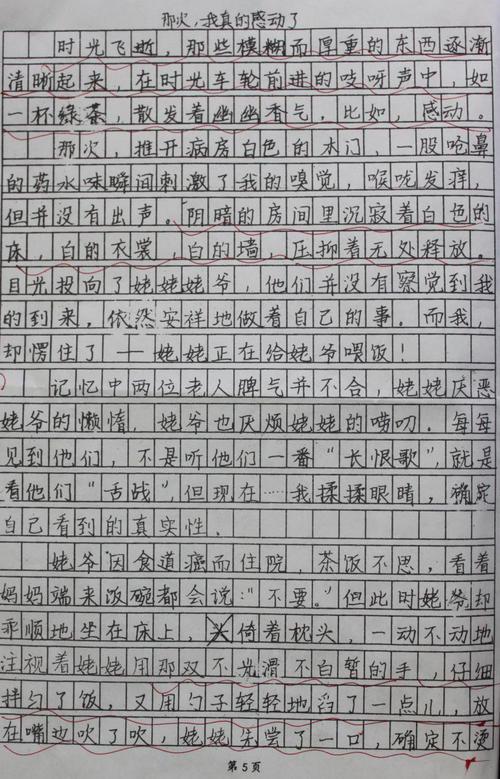 那次，我真的感动了
时光飞逝，那些模糊而厚重的东西逐渐
清晰起来，在时光车轮前进的吱呀声中，如
一杯绿茶，散发着幽幽香气。比如，感动。
那次，推开病房白色的木门，一股呛鼻
的药水味瞬间刺激了我的嗅觉，喉咙发痒，
但并没有出声。阴暗的房间里沉寂着白色的
床，白的衣裳，白的墙，压抑着无处释放。
目光投向了姥姥姥爷，他们并没有察觉到我
的到来，依然安祥地做着自己的事。而我，
却愣住了——姥姥正在给姥爷喂饭！
记忆中两位老人脾气并不合，姥姥厌恶
姥爷的懒惰，姥爷也厌烦姥姥的唠叨。每每
见到他们，不是听他们一番“长恨歌”，就是
看他们“舌战”，但现在……我揉揉眼睛，确定
自己看到的真实性。
姥爷因食道癌而住院，茶饭不思，看着
妈妈端来饭碗都会说：“不要。”但此时姥爷却
乖顺地坐在床上，倚着枕头，一动不动地
注视着姥姥用那双不光滑不白皙的手，仔细
拌匀了饭，又用勺子轻轻地舀了一点儿，放
在嘴边吹了吹，姥姥先尝了一口，确定不烫
第5页